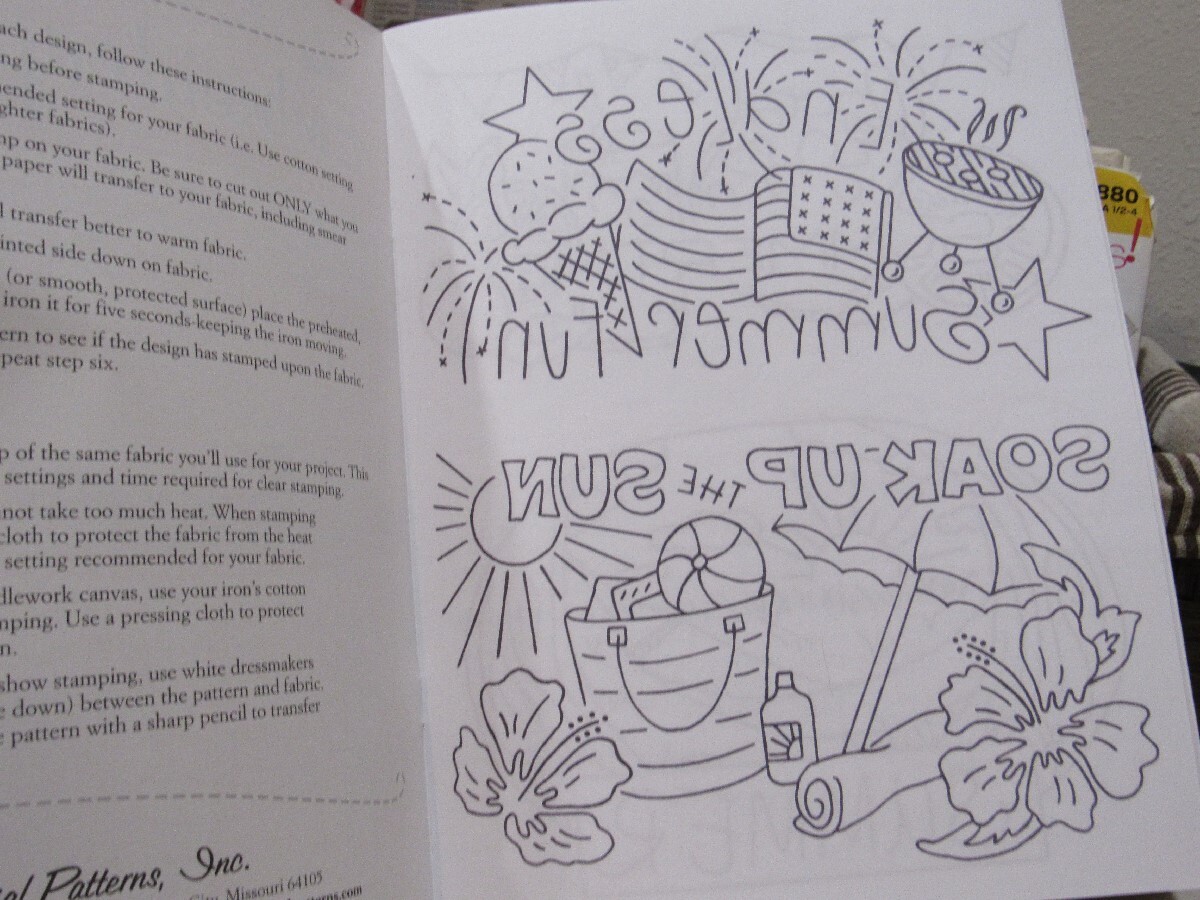 ach design, follow these instructions:
ng before stamping.
ended setting for your fabric (i.e. Use cotton setting
ghter fabrics).
mp on your fabric. Be sure to cut out ONLY what you
paper will transfer to your fabric, including smear
l transfer better to warm fabric.
inted side down on fabric.
(or smooth, protected surface) place the preheated,
iron it for five seconds-keeping the iron moving.
ern to see if the design has stamped upon the fabric.
peat step six.
p of the same fabric you'll use for your project. This
settings and time required for clear stamping.
not take too much heat. When stamping
cloth to protect the fabric from the heat
setting recommended for your fabric.
dlework canvas, use your iron's cotton
mping. Use a pressing cloth to protect
n.
show stamping, use white dressmakers
e down) between the pattern and fabric.
e pattern with a sharp pencil to transfer
al Patterns, Inc.
City, Missouri 64105
tterns.com
Endless
Summer Fun
SOAK UP THE SUN
880
A 1/2-4
s!